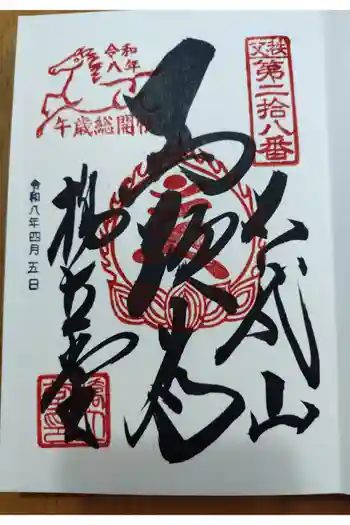 秩父
第二拾八番
石龍山
馬頭尊
橋立堂
令和八年
午歳総開帳
令和八年四月五日